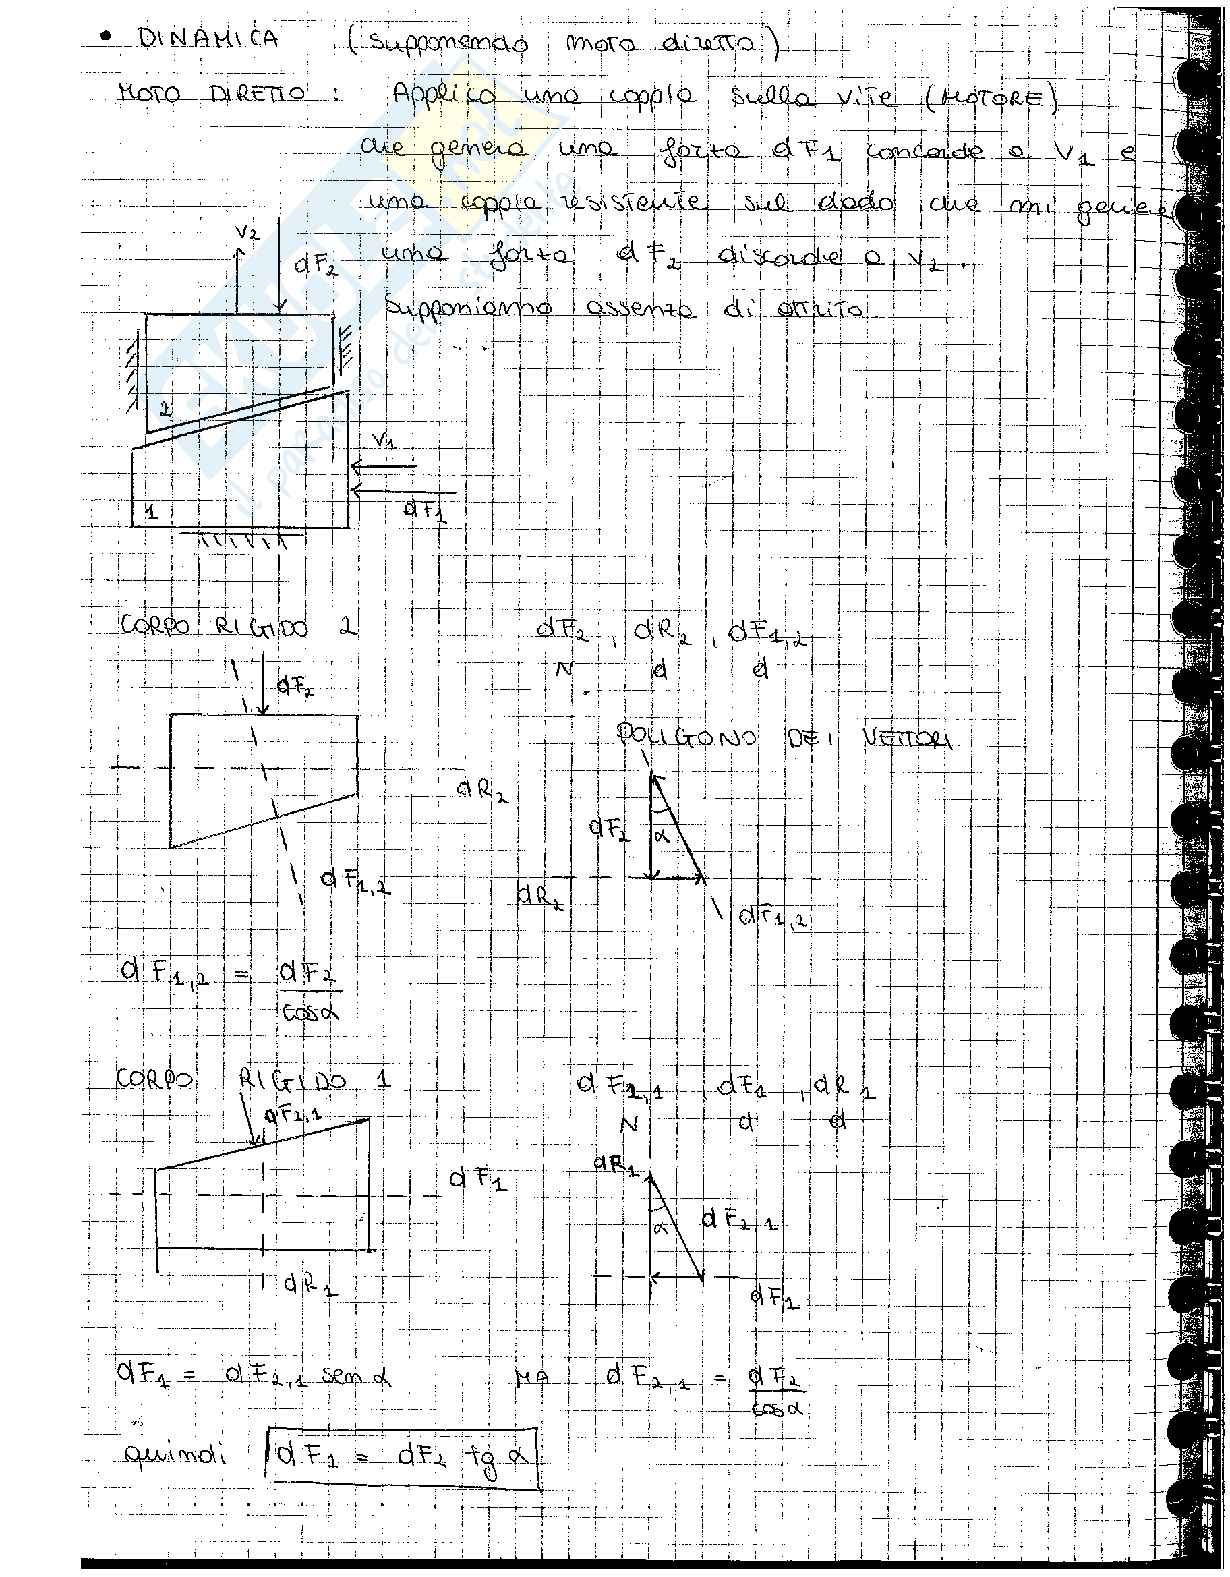 • DINAMICA (supponendo moto diretto)
MOTO DIRETTO : Applico una coppia sulla vite (MOTORE)
che genera una forza dF1 concorde a V1 e
una coppia resistente sul dado che mi genera
una forza dF2 discorde a V2.
Supponiamo assenza di attrito
V2
dF2
2
V1
dF1
1
CORPO RIGIDO 2
dF2 , dR2 , dF1,2
N d d
dF2
POLIGONO DEI VETTORI
dR2
dF2
α
dF1,2
dR2
dF1,2
dF1,2 = dF2
cosα
CORPO RIGIDO 1
dF2,1 , dF1 , dR1
N d d
dF2,1
dR1
dF1
α
dF2,1
dR1
dF1
dF1 = dF2,1 sen α MA dF2,1 = dF2
cosα
quindi dF1 = dF2 tg α